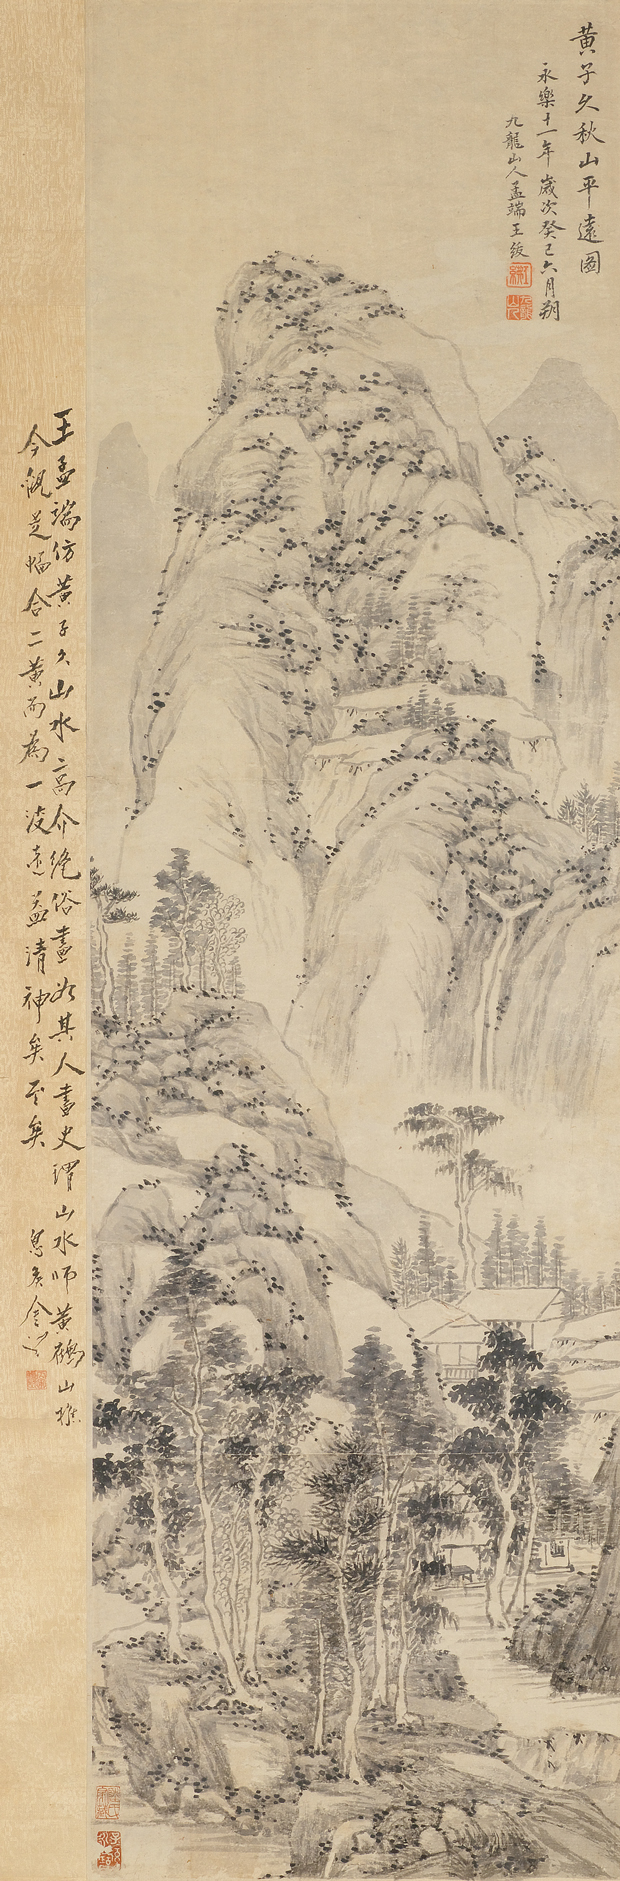 黃子久秋山平遠圖
永樂十一年歲次癸巳六月朔
九龍山人孟端王紱
王孟端仿黃子久山水高介絕俗畫如其人畫史謂山水師黃鶴山樵
今觀是幅合二黃而為一淡遠益清神矣至矣